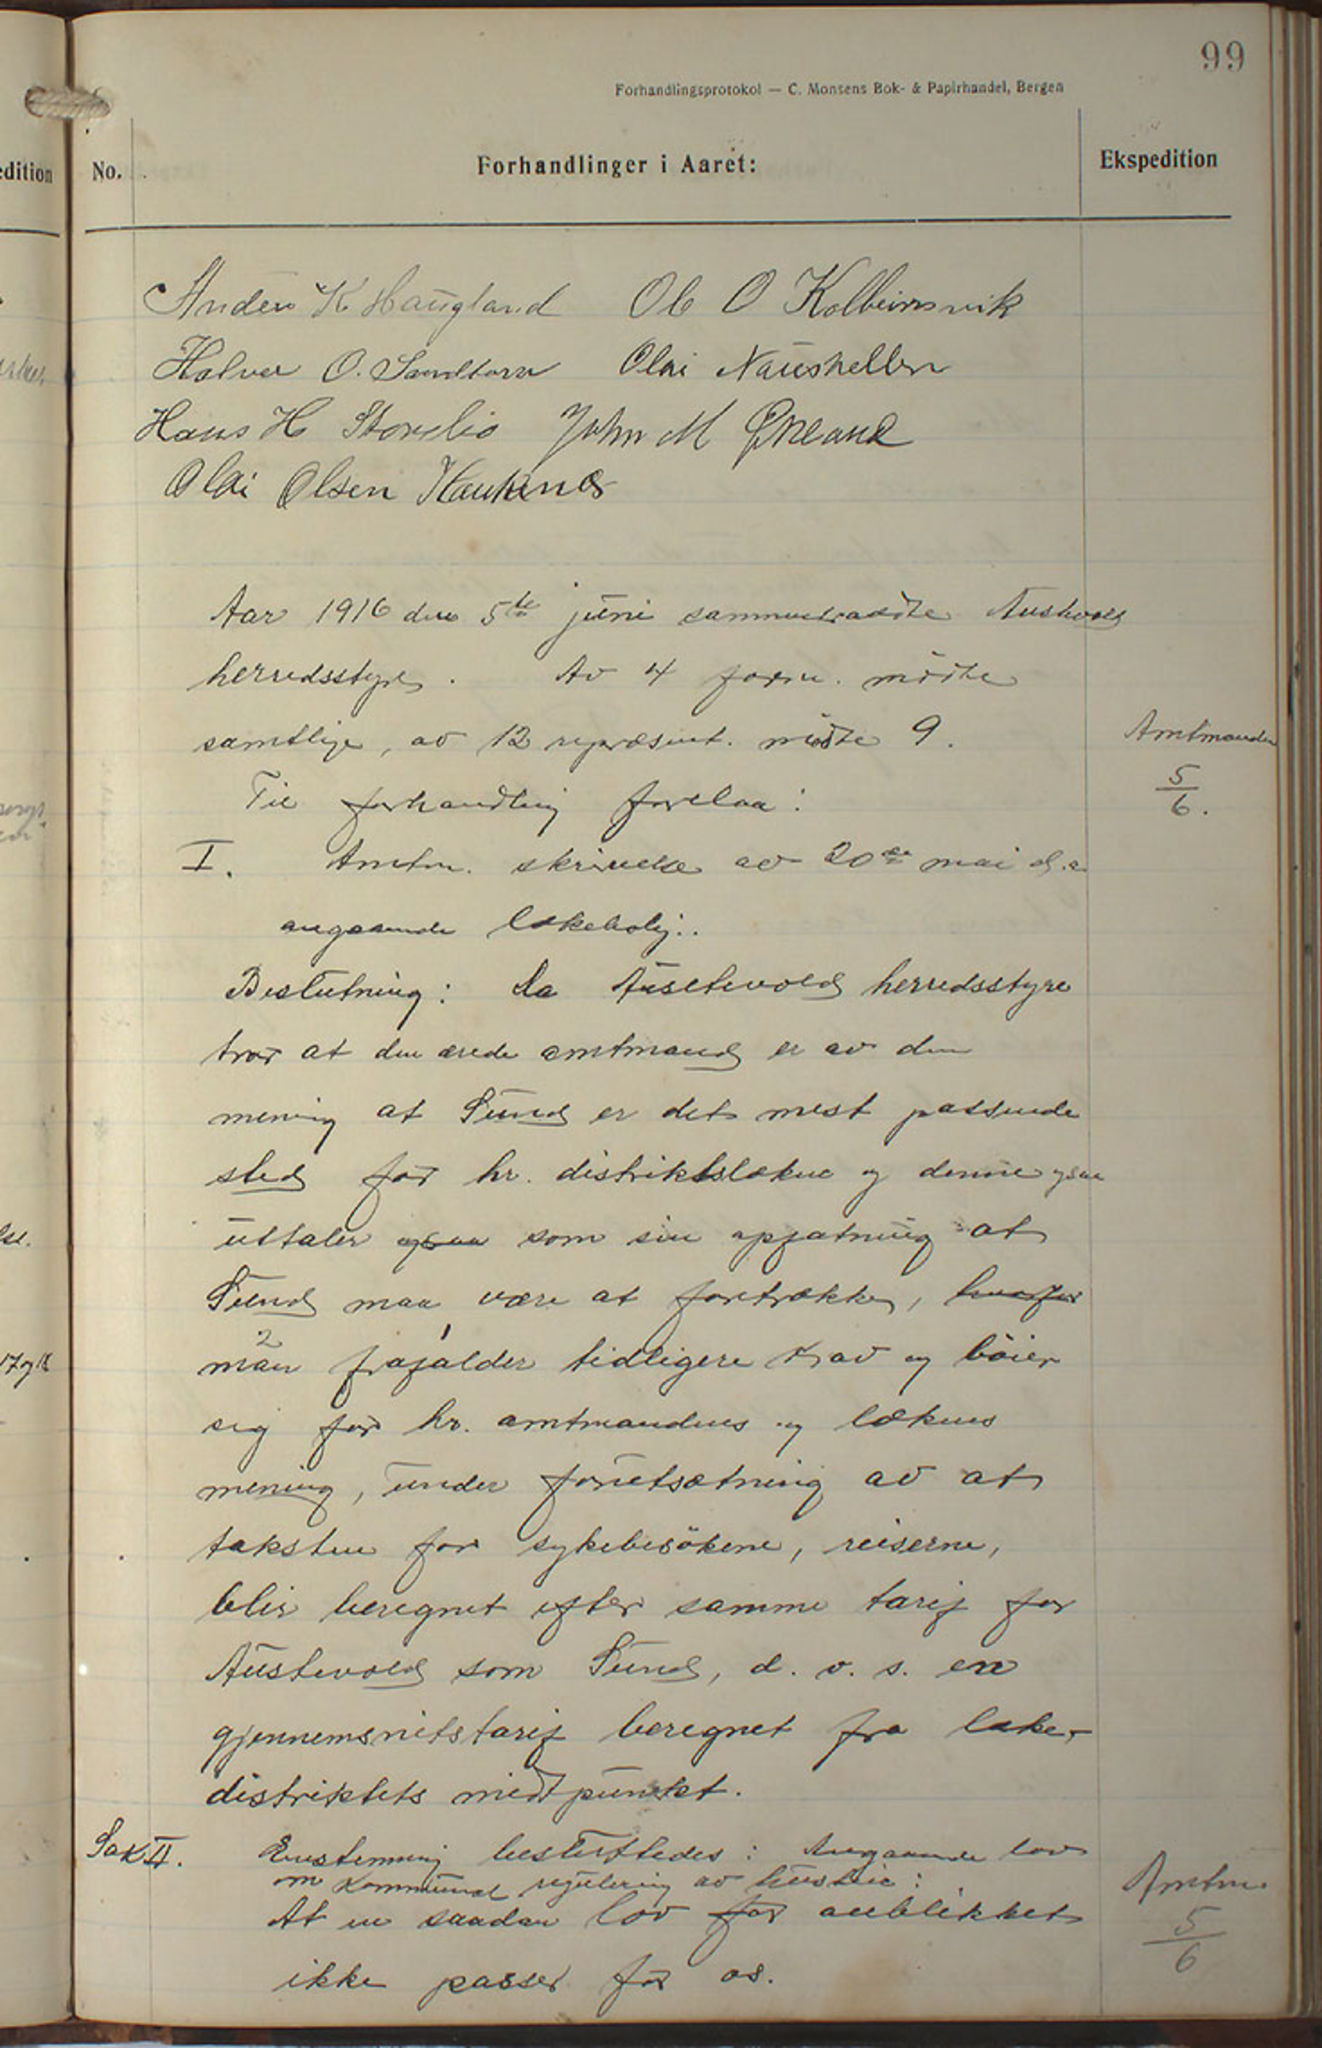 99
Forhandlingsprotokol — C. Monsens Bok- & Papirhandel, Bergen
edition No. Forhandlinger i Aaret: Ekspedition
Anders K Haugland Ole O Kolbeinsvik
Halvor O. Sandtorv Olai Naushellen
Hans H Storebø John M Ørland
Olai Olsen Haukenes
Aar 1916 den 5te juni sammentraadte Austevold
herredsstyre. Av 4 form. mødte
samtlige, av 12 repræsent. mødte 9.
Amtmanden
5/6.
Til forhandling forelaa:
I. Amtm. skrivelse av 20de mai d.a.
angaaende lækebolig..
Beslutning: Da Austevold herredsstyre
tror at den ærede amtmand er av den
mening at Sund er det mest passende
sted for hr. distriktslækne og denne ogsaa
uttaler ogsaa som sin opfatning at
Sund maa være at foretrække, hvorfor
man frafalder tidligere krav og bøier
sig for hr. amtmandens og læknens
mening, under forutsætning av at
taksten for sykebesøkene, reiserne,
blir beregnet efter samme tarif for
Austevold som Sund, d. v. s. en
gjennemsnitstarif beregnet fra læke-
distriktets midtpunkt.
Sak II. Enstemmig besluttedes: Angaaende lov
om kommunal regulering av husleie:
At en saadan lov for øieblikket
ikke passer for os.
Amtm.
5/6
17 og 18